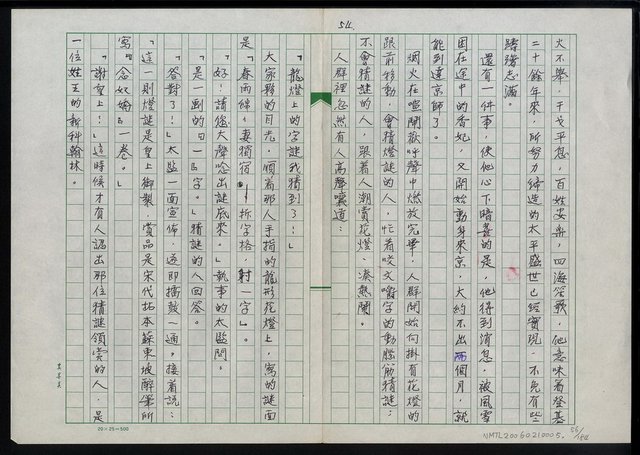 514.
火不舉,干戈平息,百姓安樂,四海笙歌,他意味着登基
二十餘年來,所努力締造的太平盛世已經實現,不免有些
躊躇志滿。
還有一件事,使他心下暗喜的是,他得到消息,被風雪
困在途中的香妃,又開始動身來京,大約不出兩個月,就
能到達京師了。
烟火在喧鬧歡呼聲中燃放完畢,人群開始向掛有花燈的
跟前移動,會猜燈謎的人,忙着咬文嚼字的動腦筋猜謎;
不會猜謎的人,跟着人潮賞花燈、湊熱鬧。
人群裡忽然有人高聲嚷道:
「龍燈上的字謎我猜到了!」
大家夥的目光,順着那人手指的龍形花燈上,寫的謎面
是「春雨綿綿妻獨宿」折字格,射一字」。
「好!請您大聲唸出謎底來。」執事的太監問。
「是一劃的『一』字。」猜謎的人回答。
「答對了!」太監一面宣佈,並即擂鼓一通,接着說:
「這一則燈謎是皇上御製,賞品是宋代拓本蘇東坡醉筆所
寫『念奴嬌』一卷。」
「謝皇上!」這時候才有人認出那位猜謎領賞的人,是
一位姓王的新科翰林。
20×25=500
NMTL20060210005.
56/184